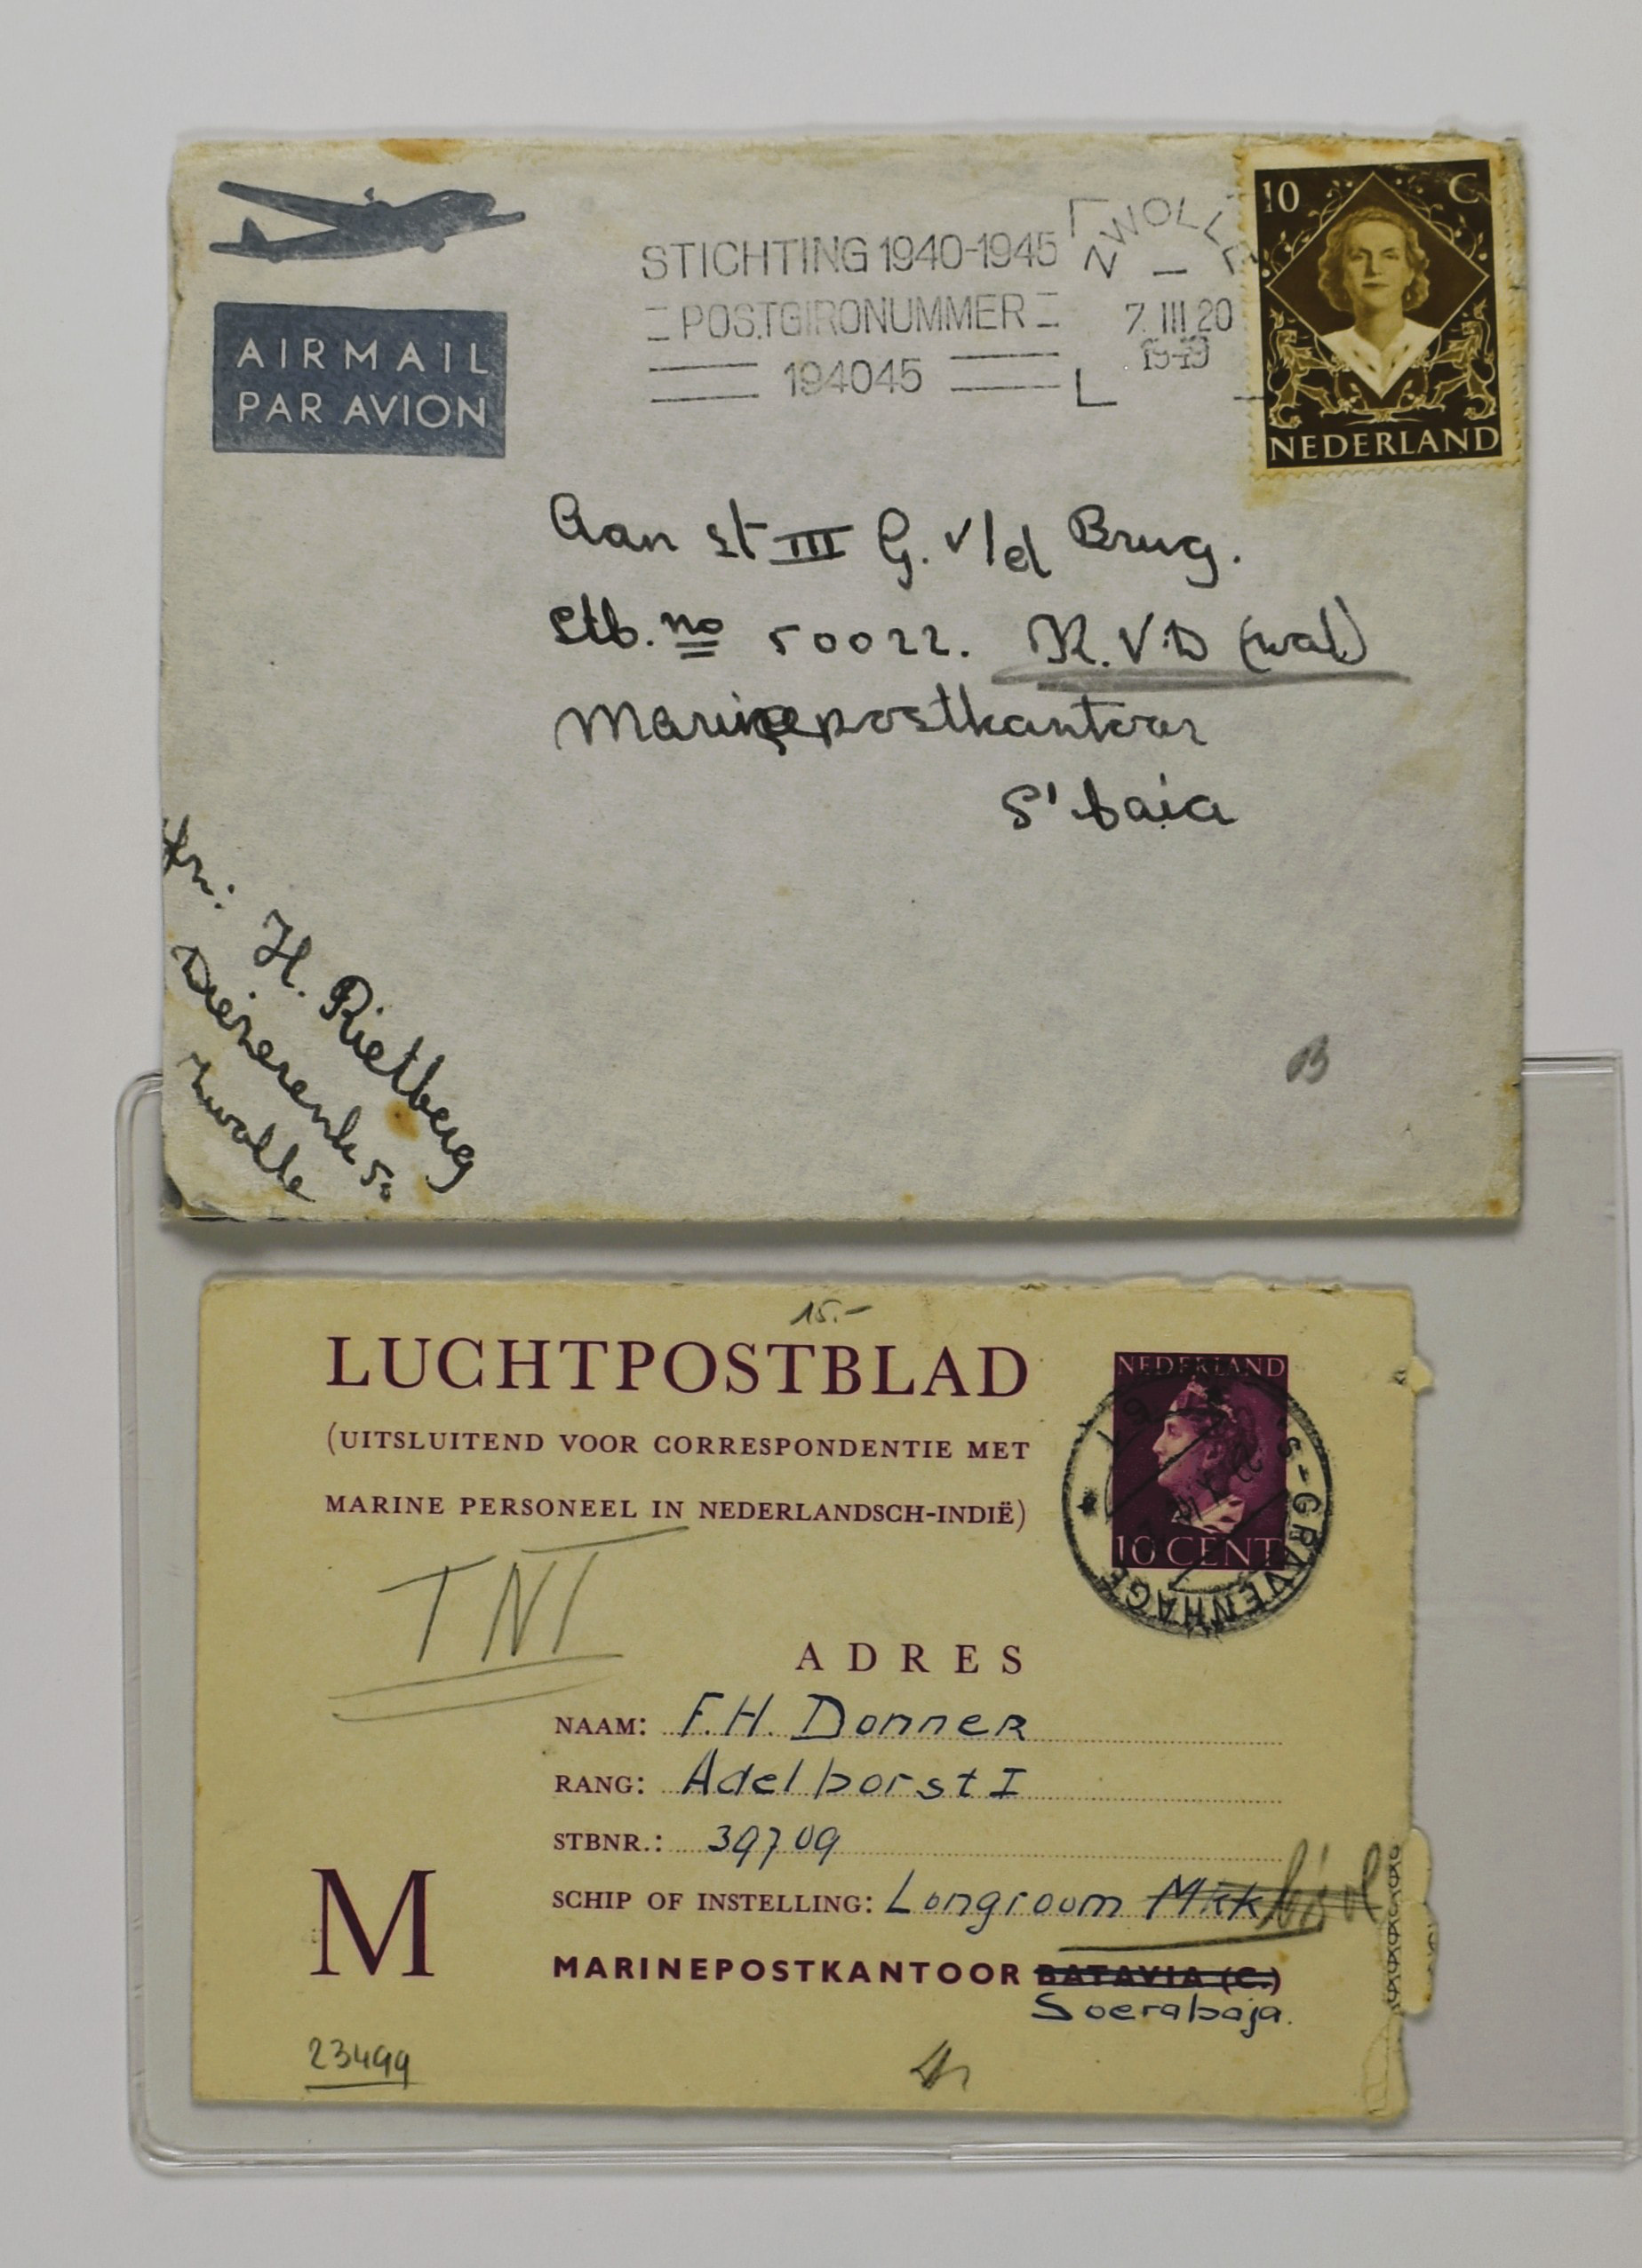 AIRMAIL
PAR AVION
STICHTING 1940-1945
POSTGIRONUMMER
194045
ZWOLLE
7. III 20
1949
10 C
NEDERLAND
Aan st III G. v/d Brug.
Stb. no 50022. K.V.D (wal)
Marinepostkantoor
S'baia
H. Rietberg
Diezerenk 50
Zwolle
15.-
LUCHTPOSTBLAD
(UITSLUITEND VOOR CORRESPONDENTIE MET
MARINE PERSONEEL IN NEDERLANDSCH-INDIË)
NEDERLAND
10 CENT
'S-GRAVENHAGE
TNI
ADRES
NAAM: F.H. Donner
RANG: Adelborst I
STBNR.: 39709
SCHIP OF INSTELLING: Longroom Mkk
M
MARINEPOSTKANTOOR BATAVIA (C.)
Soerabaja.
23499